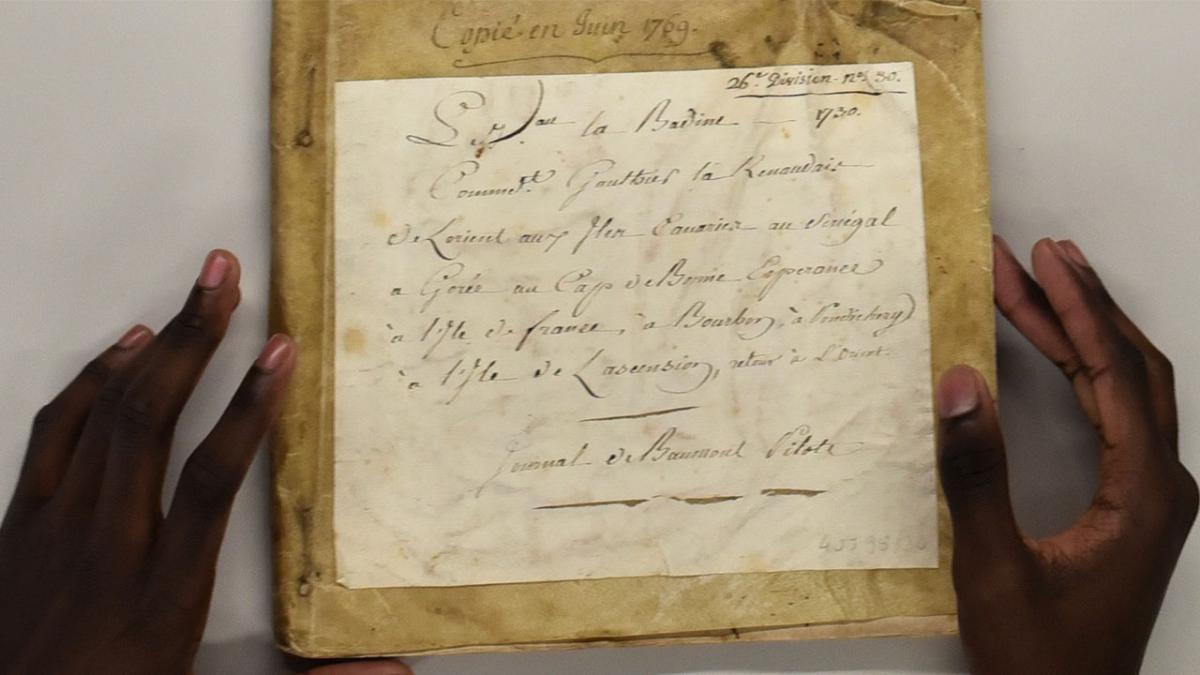 Copié en Juin 1769.
26.e Division n.o 30.
Le V.au la Badine — 1730.
Commd.t Gauthier la Renaudais
de Lorient aux Isles Canaries au Sénégal
a Gorée au Cap de Bonne Esperance
à l'Isle de france, à Bourbon, à Pondichery
à l'Isle de Lascension, retour à L'Orient.
Journal de Baumont Pilote
4 JJ 98